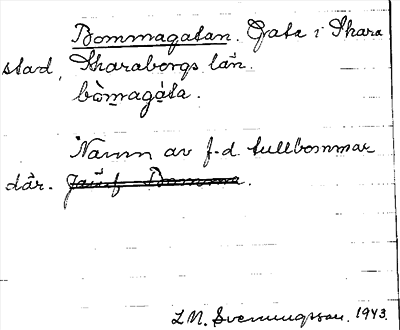 Bommagatan. Gata i Skara
stad, Skaraborgs län.
bòmagáta.
Namn av f.d. tullbommar
där. Jämf Bomma.
L M. Svenungsson. 1943.